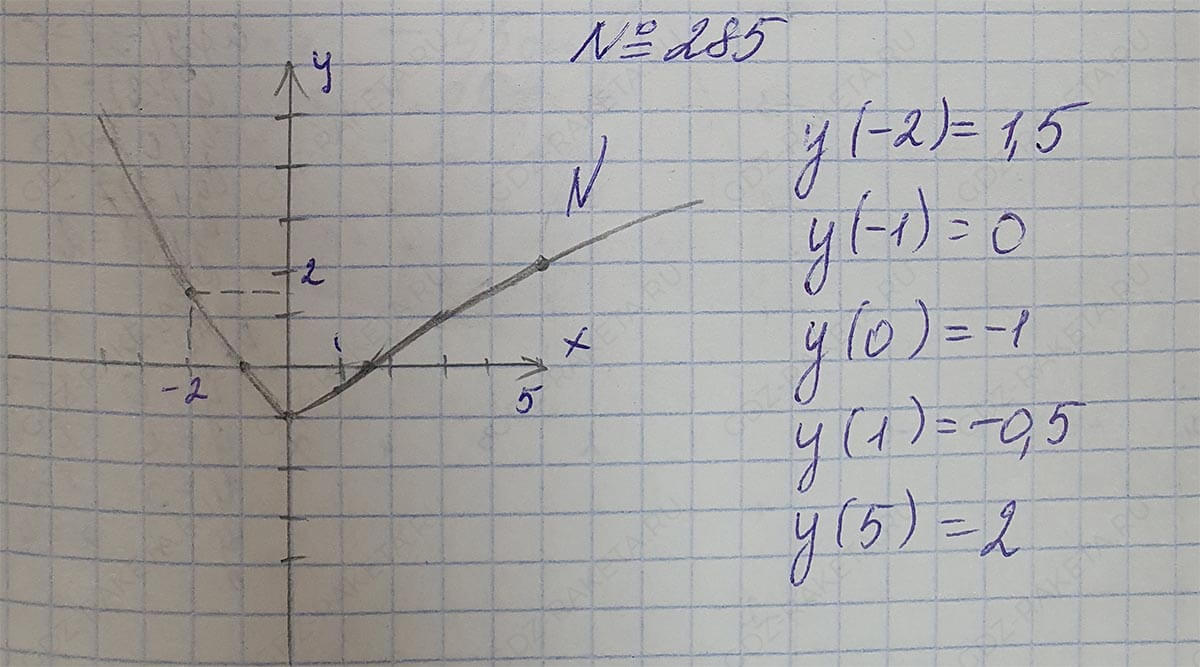 № 285
y
N
2
1
x
-2
5
y(-2) = 1,5
y(-1) = 0
y(0) = -1
y(1) = -0,5
y(5) = 2
GDZ-RAKETA.RU